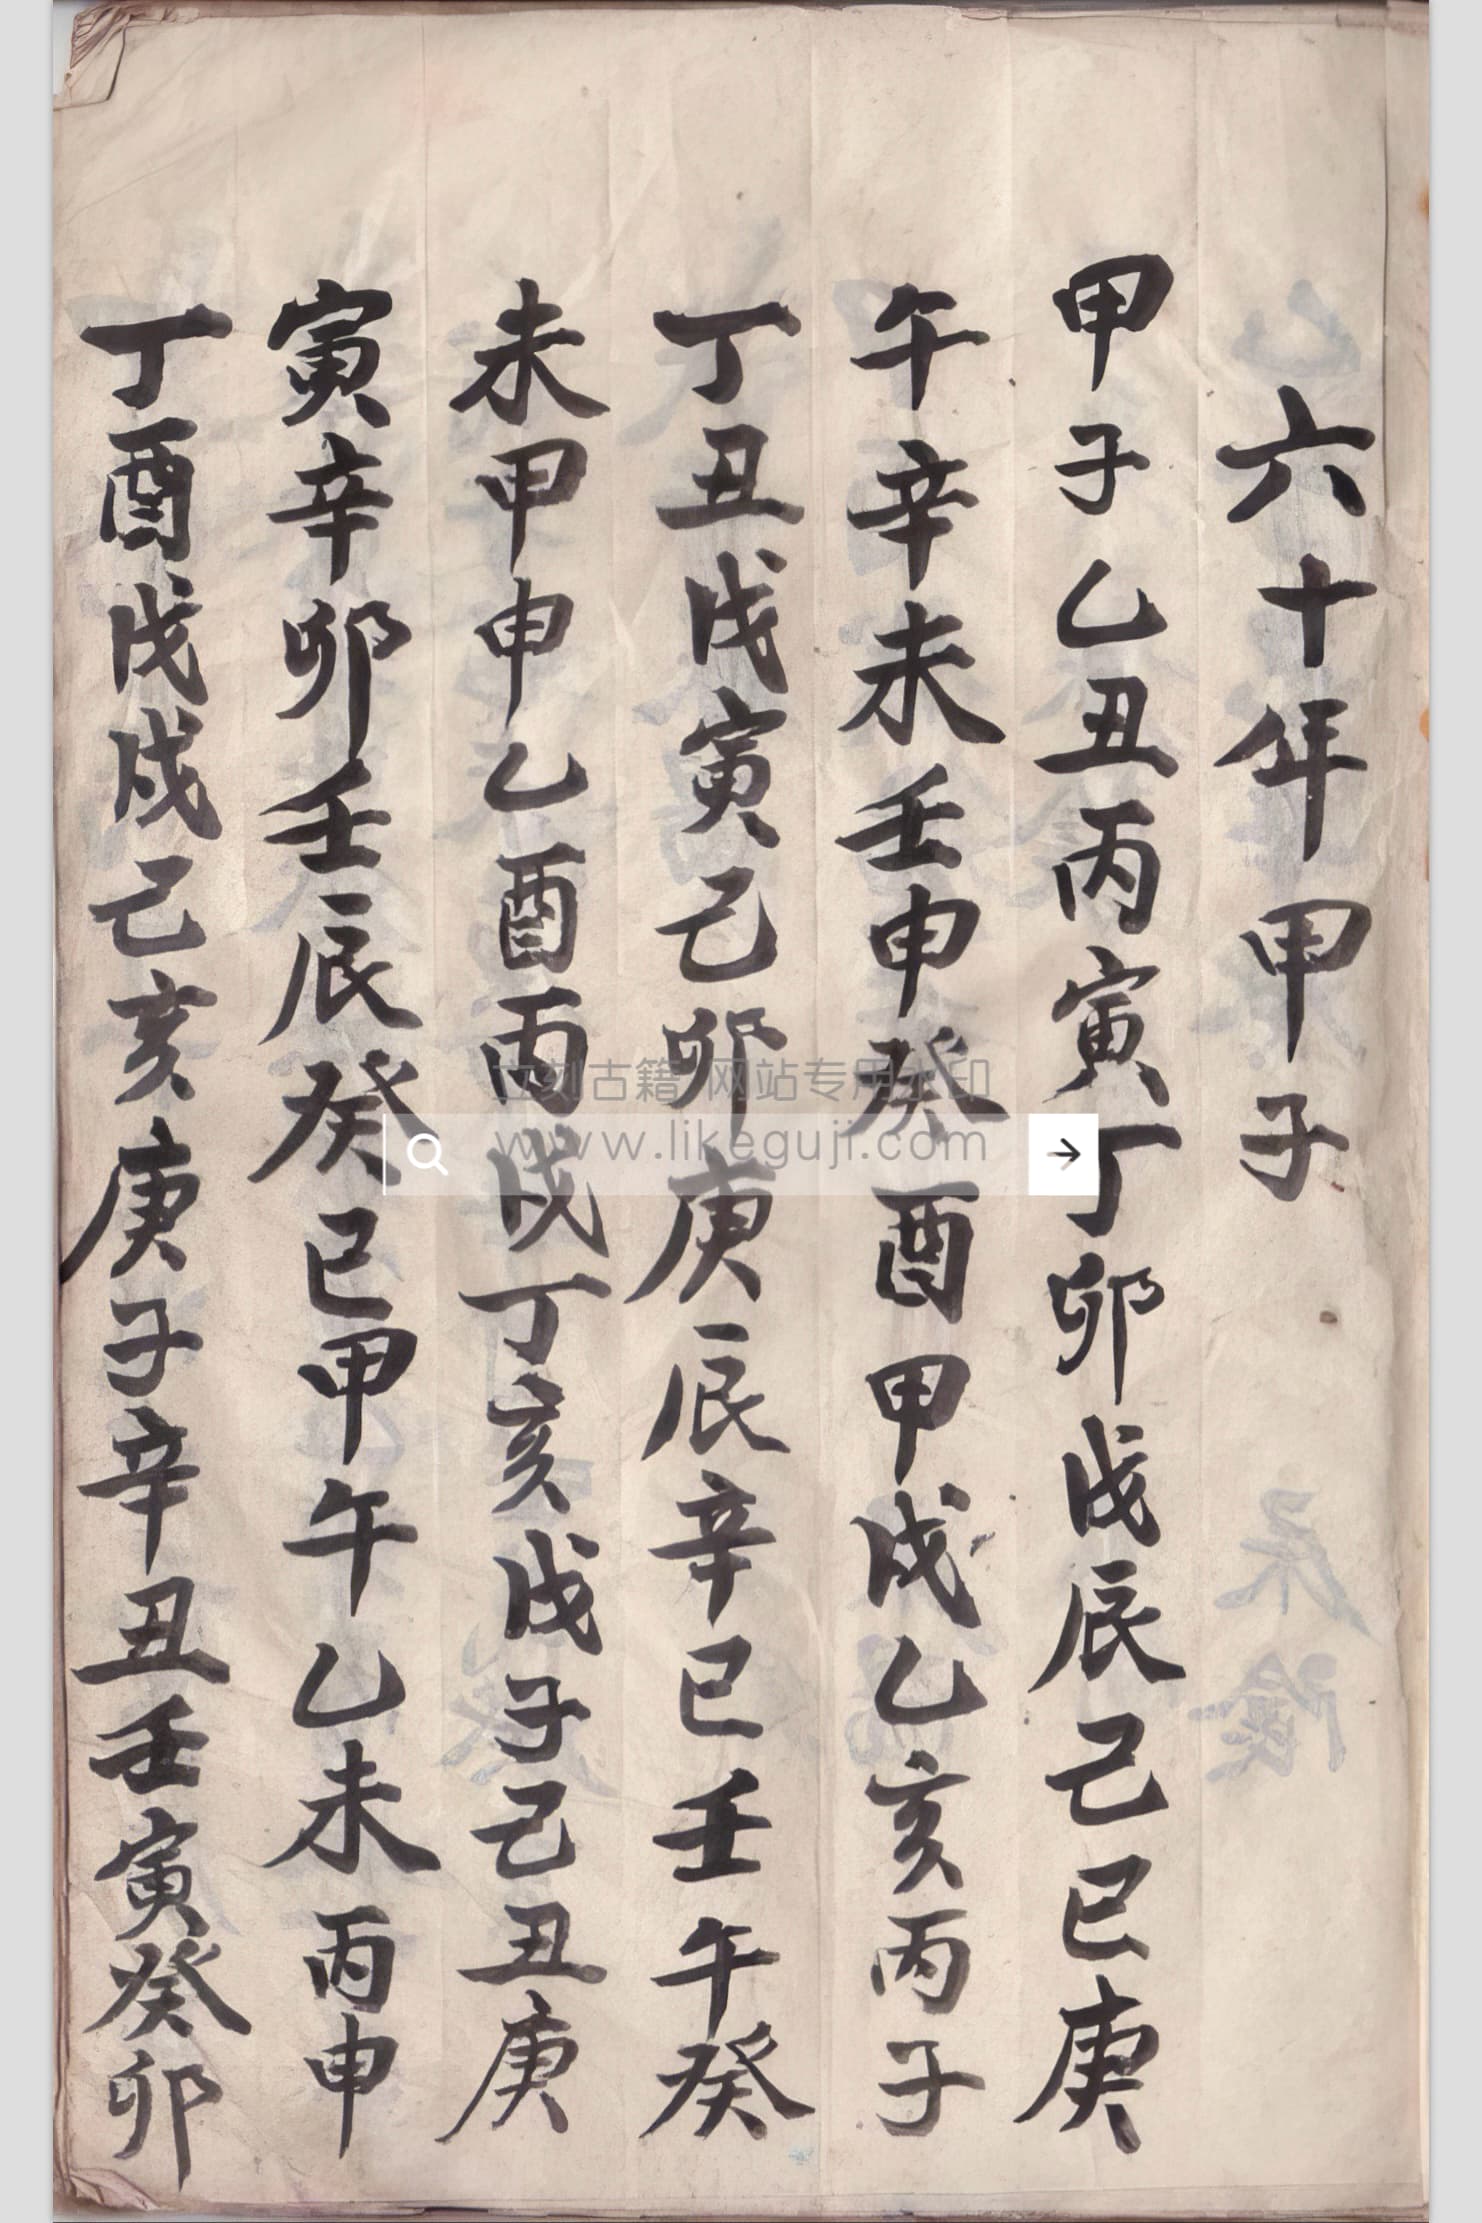 六十年甲子
甲子乙丑丙寅丁卯戊辰己巳庚
午辛未壬申癸酉甲戌乙亥丙子
丁丑戊寅己卯庚辰辛巳壬午癸
未甲申乙酉丙戌丁亥戊子己丑庚
寅辛卯壬辰癸巳甲午乙未丙申
丁酉戊戌己亥庚子辛丑壬寅癸卯
立刻古籍 网站专用水印
www.likeguji.com